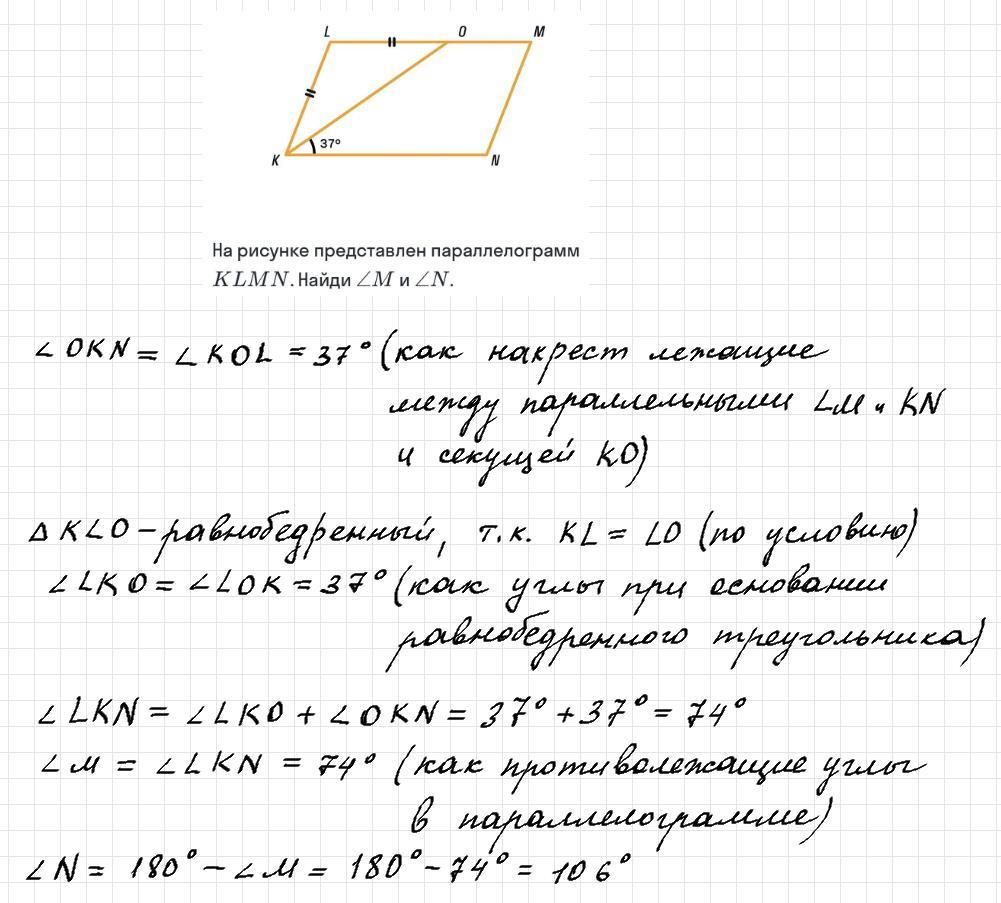 L O M
K 37° N
На рисунке представлен параллелограмм
KLMN. Найди ∠M и ∠N.
∠OKN = ∠KOL = 37° (как накрест лежащие
между параллельными LM и KN
и секущей KO)
Δ KLO - равнобедренный, т.к. KL = LO (по условию)
∠LKO = ∠LOK = 37° (как углы при основании
равнобедренного треугольника)
∠LKN = ∠LKO + ∠OKN = 37° + 37° = 74°
∠M = ∠LKN = 74° (как противолежащие углы
в параллелограмме)
∠N = 180° - ∠M = 180° - 74° = 106°